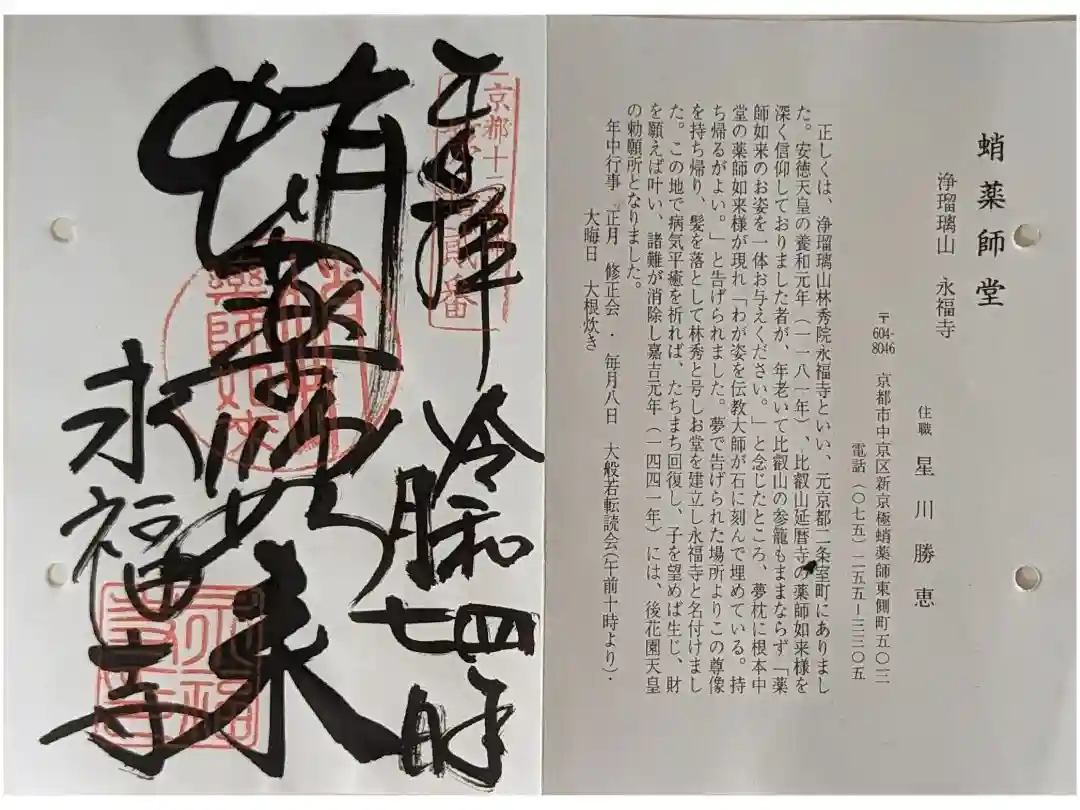 蛸薬師堂
浄瑠璃山 永福寺
住職 星川勝恵
〒604-8046 京都市中京区新京極蛸薬師東側町五〇二
電話(〇七五)二五五ー三三〇五
正しくは、浄瑠璃山林秀院永福寺といい、元京都二条室町にありまし
た。安徳天皇の養和元年(一一八一年)、比叡山延暦寺の薬師如来様を
深く信仰しておりました者が、年老いて比叡山の参籠もままならず「薬
師如来のお姿を一体お与えください。」と念じたところ、夢枕に根本中
堂の薬師如来様が現れ「わが姿を伝教大師が石に刻んで埋めている。持
ち帰るがよい。」と告げられました。夢で告げられた場所よりこの尊像
を持ち帰り、髪を落として林秀と号しお堂を建立し永福寺と名付けまし
た。この地で病気平癒を祈れば、たちまち回復し、子を望めば生じ、財
を願えば叶い、諸難が消除し嘉吉元年(一四四一年)には、後花園天皇
の勅願所となりました。
年中行事 正月 修正会・毎月八日 大般若転読会(午前十時より)・
大晦日 大根炊き
奉拝 令和四年
七月
蛸薬師如来
永福寺
京都十二
貳番
薬師如来
永福